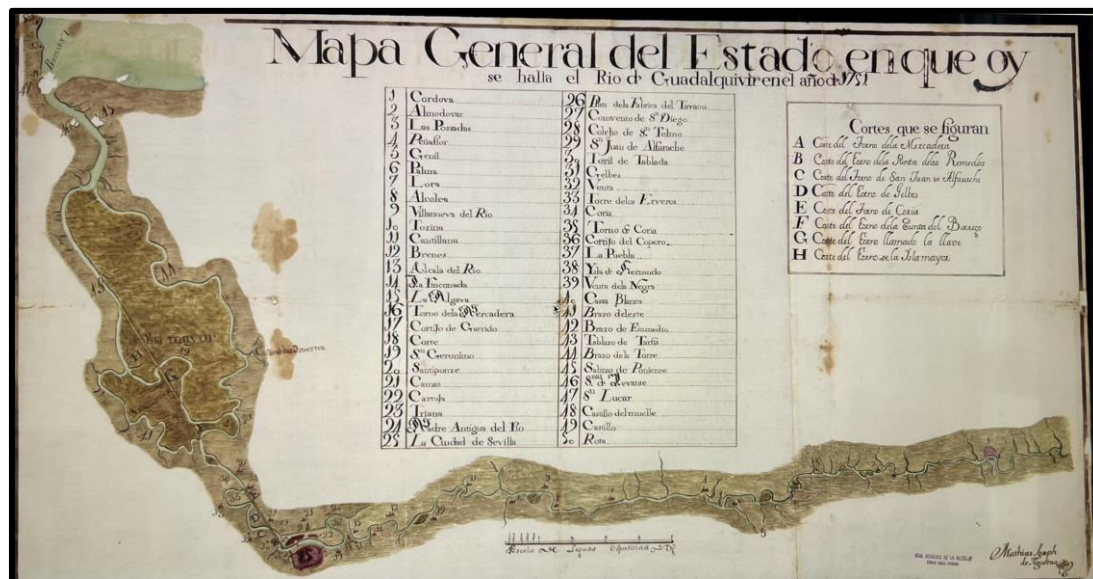 Mapa General del Estado en que oy
se halla el Rio de Guadalquivir en el año de 1751
1 Cordova
2 Almodovar
3 Las Posadas
4 Peñaflor
5 Genil
6 Palma
7 Lora
8 Alcolea
9 Villanueva del Rio
10 Tozina
11 Cantillana
12 Brenes
13 Alcala del Rio
14 La Rinconada
15 La Algava
16 Torno dela Mercadera
17 Cortijo de Garrido
18 Corte
19 Sn Geronimo
20 Santiponze
21 Camas
22 Cartuja
23 Triana
24 Madre Antigua del Rio
25 La Ciudad de Sevilla
26 Plan dela Fabrica del Tavaco
27 Convento de Sn Diego
28 Colejio de Sn Telmo
29 Sn Juan de Alfarache
30 Toril de Tablada
31 Gelbes
32 Venta
33 Torre delos Erveros
34 Coria
35 Torno de Coria
36 Cortijo del Copero
37 La Puebla
38 Ysla de Hernando
39 Venta dela Negra
40 Cassa Blanca
41 Brazo deleste
42 Brazo de Enmedio
43 Tablazo de Tarfia
44 Brazo dela Torre
45 Salinas de Poniente
46 de Levante
47 Sn Lucar
48 Castillo del muelle
49 Castillo
50 Rota
Cortes que se figuran
A Corte del Torno dela Mercadera
B Corte del Torno dela Punta delos Remedios
C Corte del Torno de San Juan de Alfarache
D Corte del Torno de Gelbes
E Corte del Torno de Coria
F Corte del Torno dela Punta del Borrego
G Corte del Torno llamado la llave
H Corte del Torno de la Isla mayor
Escala de Leguas Españolas
Mathias Joseph
de Figueroa